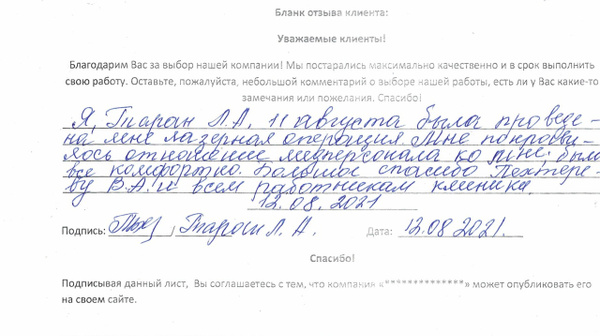 Бланк отзыва клиента:
Уважаемые клиенты!
Благодарим Вас за выбор нашей компании! Мы постарались максимально качественно и в срок выполнить
свою работу. Оставьте, пожалуйста, небольшой комментарий о выборе нашей работы, есть ли у Вас какие-то
замечания или пожелания. Спасибо!
Я, Таран Л.А, 11 августа была проведе-
на мне лазерная операция. Мне понрави-
лось отношение медперсонала ко мне, было
все комфортно. Большое спасибо Пехтере-
ву В.А. и всем работникам клиники
12.08.2021
Подпись: Таран Л.А. Дата: 12.08.2021.
Спасибо!
Подписывая данный лист, Вы соглашаетесь с тем, что компания «**************» может опубликовать его
на своем сайте.